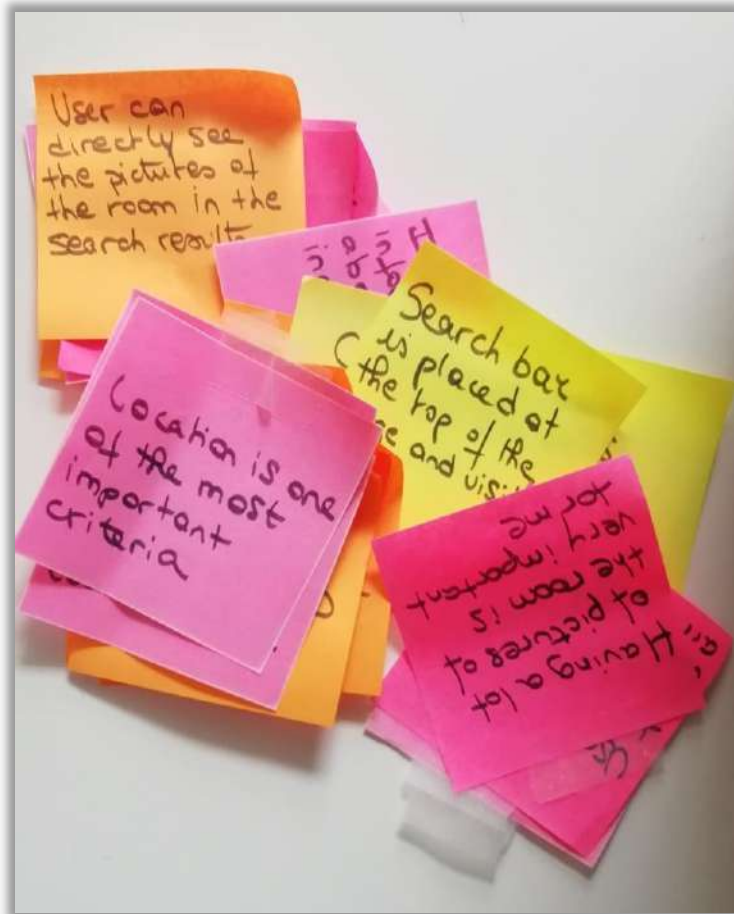 User can
directly see
the pictures of
the room in the
search results
Search bar
is placed at
(the top of the
and
Location is one
of the most
important
criteria
Having a lot
of pictures of
the room is
very important
for me